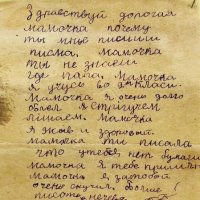 Здравствуй дорогая
мамочка почему
ты мне пишиш
писма. мамочка
ты не знаеш
где папа. Мамочка
я учусь во класи.
Мамочка я очень долго
болел стрегучем
лишаем. мамочка
я жив и здоровий.
мамочка ты писала
что у тебя нет бумаги
мамочка я тебе пришлю
Мамочка я
очень скучил больше
писать нечего